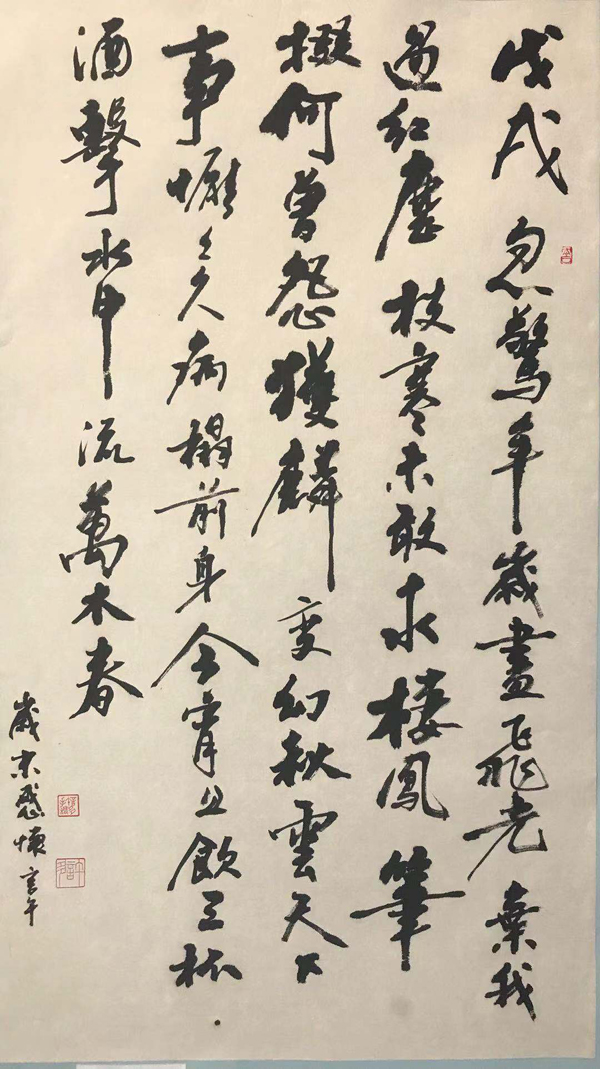 戊戌忽驚年歲盡飛光棄我
過紅塵枝寒未敢求棲鳳筆
掇何曾怨獲麟變幻秋雲天下
事懨々久病榻前身今宵且飲三杯
酒擊水中流萬木春
歲末感懷言午